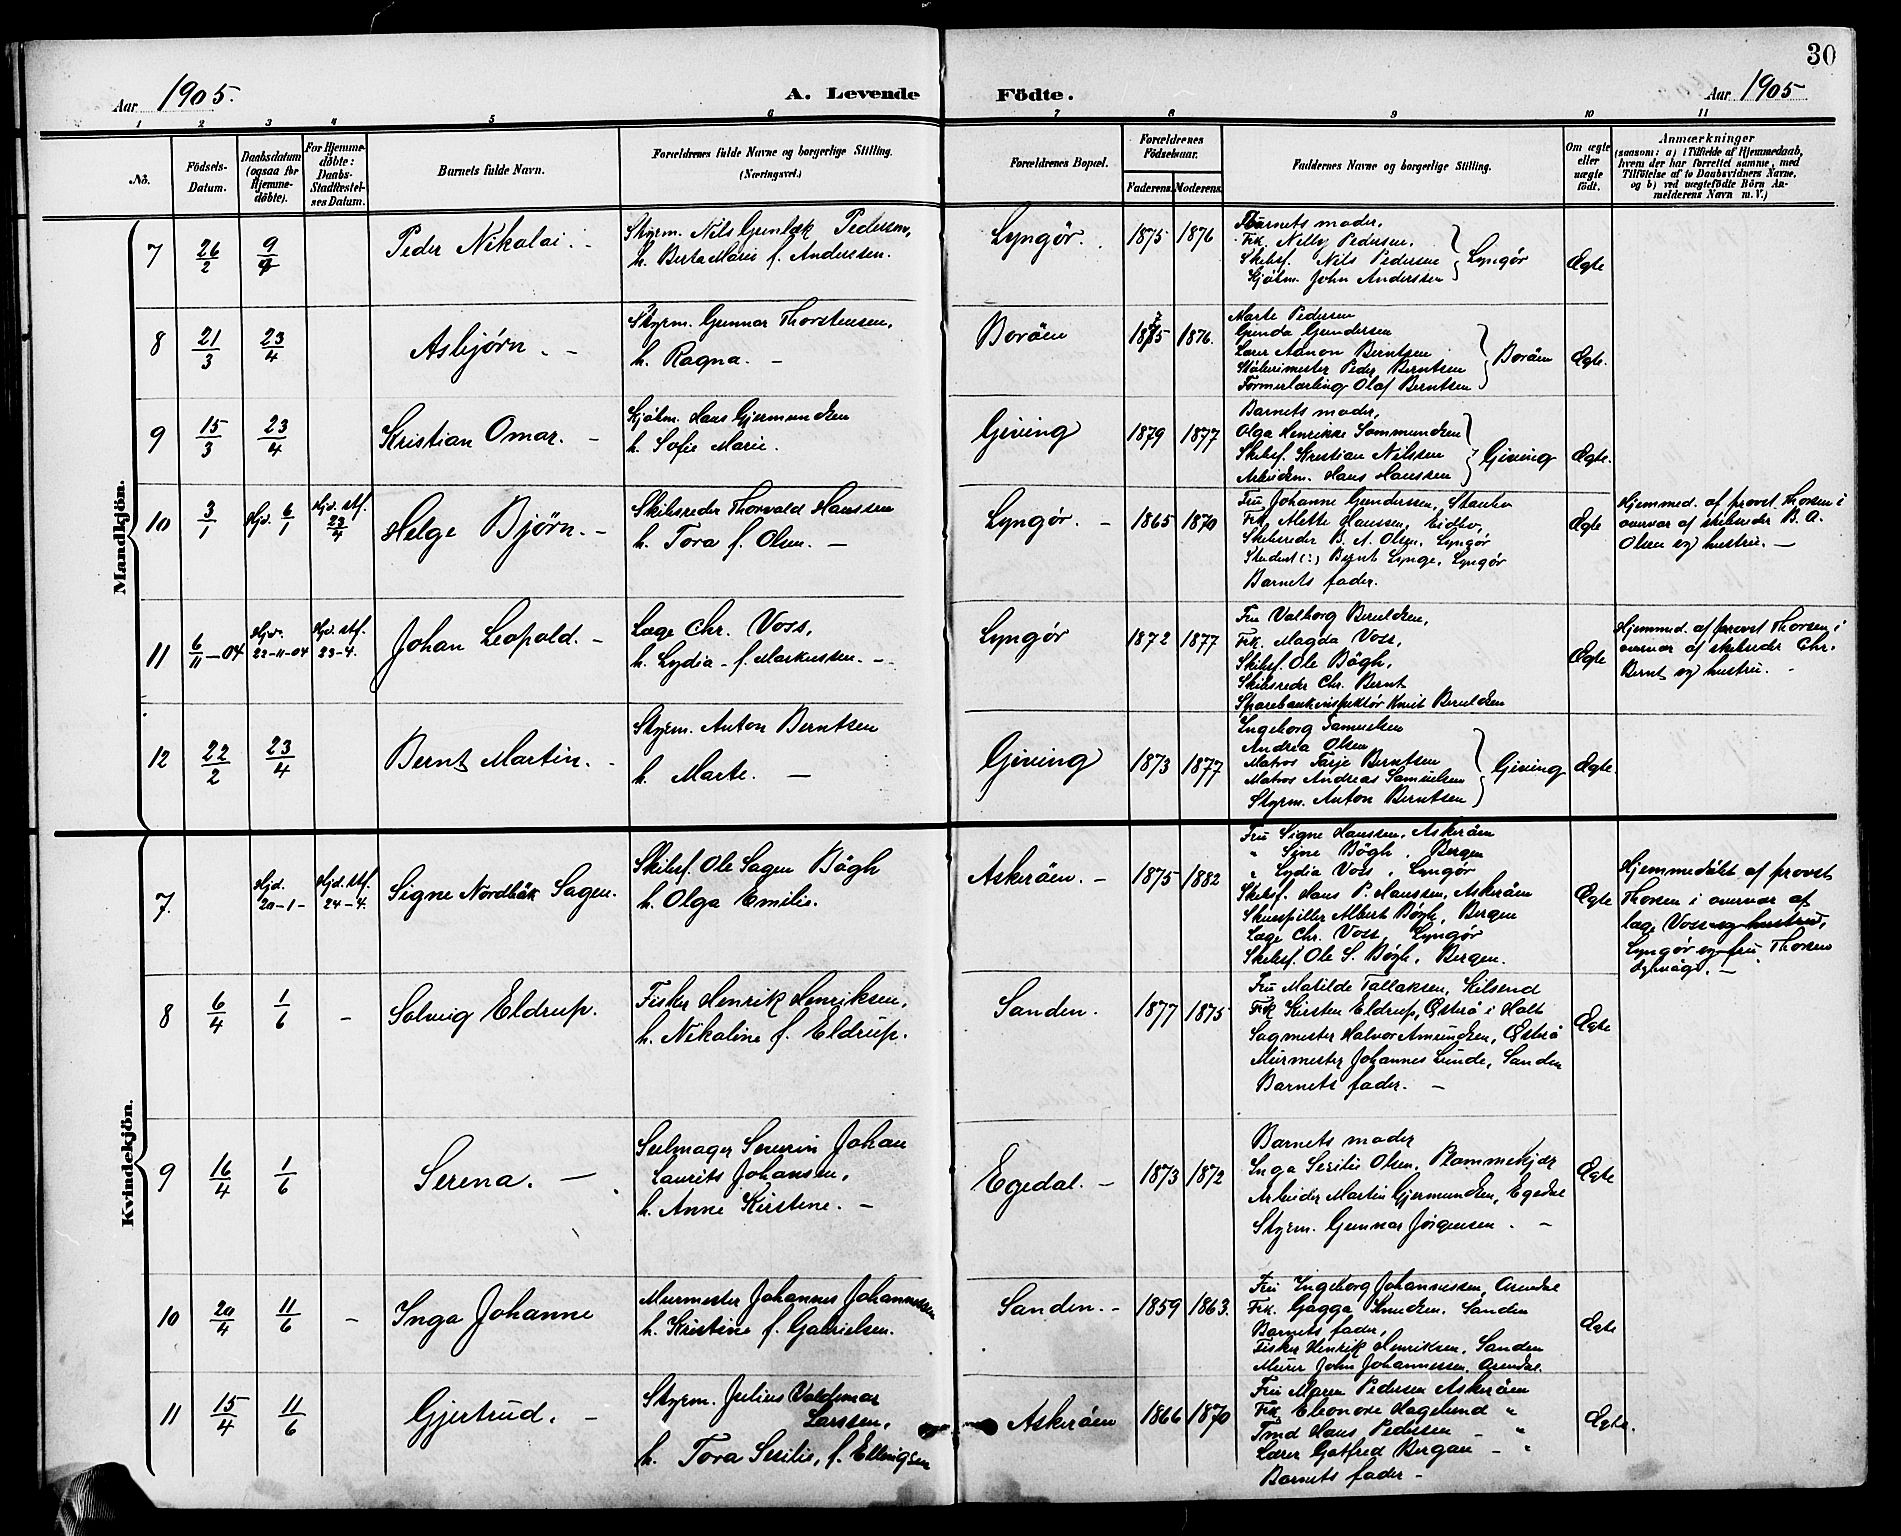 30
Aar 1905.
A. Levende
Födte.
Aar 1905
1 2 3 4 5 6 7 8 9 10 11
No.
Födsels-
Datum.
Daabsdatum
(ogsaa for
Hjemme-
döbte).
For Hjemme-
döbte:
Daabs-
Stadfestel-
ses Datum.
Barnets fulde Navn.
Forældrenes fulde Navne og borgerlige Stilling.
(Næringsvei.)
Forældrenes Bopæl.
Forældrenes
Födselsaar.
Faderens. Moderens.
Faddernes Navne og borgerlige Stilling.
Om ægte
eller
uægte
födt.
Anmærkninger
(saasom: a) i Tilfælde af Hjemmedaab,
hvem der har forrettet samme, med
Tilföielse af to Daabsvidners Navne,
og b) ved uægtefödte Börn An-
melderens Navn m. V.)
Mandkjön.
7
26/2
9/4
Peder Nikolai. -
Styrm. Nils Pedersen,
h. Berta Marie f. Anderssen.
Lyngör.
1875 1876
Barnets moder,
Frk. Nelly Pedersen,
Skibsf. Nils Pedersen
John Anderssen
Lyngör
Ægte
8
21/3
23/4
Asbjørn. -
Styrm. Gunnar Thorstensen,
h. Ragna. -
Boröen
1875 1876.
Marte Pedersen
Gundersen
Lærer Aanon Berntsen
Peder Berntsen
Formerlærling Olaf Berntsen
Boröen
Ægte.
9
15/3
23/4
Kristian Omar. -
Hans Gjermundsen
h. Sofie Marie.
Giving
1879 1877
Barnets moder,
Olga Henrikke Sommundsen
Skibsf. Kristian Nilssen
Arbeidsm. Hans Hanssen
Giving
Ægte.
10
3/1
Hjd. 6/1
Hjd. stf.
23/4
Helge Bjørn. -
Skibsreder Thorvald Hanssen
h. Tora f. Olsen. -
Lyngör. -
1865 1870
Fru Johanne Gundersen,
Frk. Mette Hanssen,
Skibsreder B. A. Olsen, Lyngör
Student (:) Bernt Lynge, Lyngør
Barnets fader.
Ægte
Hjemmed. af provst Thorsen i
overvær af skibsreder B. A.
Olsen og hustru. -
11
6/11-04
Hjd.
22-11-04
Hjd. stf.
23-4.
Johan Leopold. -
Læge Chr. Voss,
h. Lydia - f. Markussen. -
Lyngör
1872 1877
Fru Valborg Beruldsen,
Frk. Magda Voss,
Skibsf. Ole Bögh,
Skibsreder Chr. Bernt
Sparebankinspektör Knut Beruldsen
Ægte
Hjemmed. af provst Thorsen i
overvær af skibsreder Chr.
Bernt og hustru. -
12
22/2
23/4
Bernt Martin. -
Styrm. Anton Berntsen
h. Marte. -
Giving
1873 1877
Ingeborg Samuelsen
Andrea Olsen
Matros Tarje Berntsen
Matros Andreas Samuelsen
Styrm. Anton Berntsen
Giving
Ægte.
Kvindekjön.
7.
Hjd.
20-1-
Hjd. stf.
24-4.
Signe Nordbäk Sagen.
Skibsf. Ole Sagen Bögh
h. Olga Emilie.
Askeröen. -
1875 1882
Fru Signe Hanssen, Askeröen
" Sine Bögh, Bergen
" Lydia Voss, Lyngör
Skibsf. Hans P. Hanssen, Askeröen
Skuespiller Albert Bögh, Bergen
Læge Chr. Voss, Lyngør
Skibsf. Ole S. Bögh, Bergen.
Ægte
Hjemmedöbt af provst
Thorsen i overvær af
læge Voss og hustru,
Lyngör og fru Thorsen
Dybvåg. -
8
6/4
1/6
-
Solveig Eldrup.
Fisker Henrik Henriksen,
h. Nikoline f. Eldrup.
Sanden.
1877 1875
Fru Matilde Tallaksen, Kilsund
Frk Kirsten Eldrup, Österö i Holt
Sagmester Halvor Amundsen, Österö
Murmester Johannes Lunde, Sanden
Barnets fader. -
Ægte
9
16/4
1/6
Serena. -
Seilmager Severin Johan
Laurits Johansen,
h. Anne Kirstine. -
Egedal. -
1873 1872
Barnets moder
Inga Serilie Olsen,
Arbeider Martin Gjermundsen, Egedal
Styrm. Gunnar Jörgensen. -
Ægte
10
20/4
11/6
-
Inga Johanne
Murmester Johannes Johannessen
h. Kristine f. Gabrielsen.
Sanden. -
1859 1863.
Fru Ingeborg Johannessen, Arendal
Frk. Gagga Knudsen, Sanden
Barnets fader,
Fisker Henrik Henriksen, Sanden
Murer John Johannessen, Arendal.
Ægte
11
15/4
11/6
Gjertrud. -
Styrm. Julius Valdemar
Larssen,
h. Tora Sesilie, f. Ellingsen
Askeröen
1866 1870
Fru Maren Pedersen Askeröen
Frk. Eleonore Hagelund "
Tmd Hans Pedersen - "
Lærer Gotfred Bergan - "
Barnets fader -
Ægte.